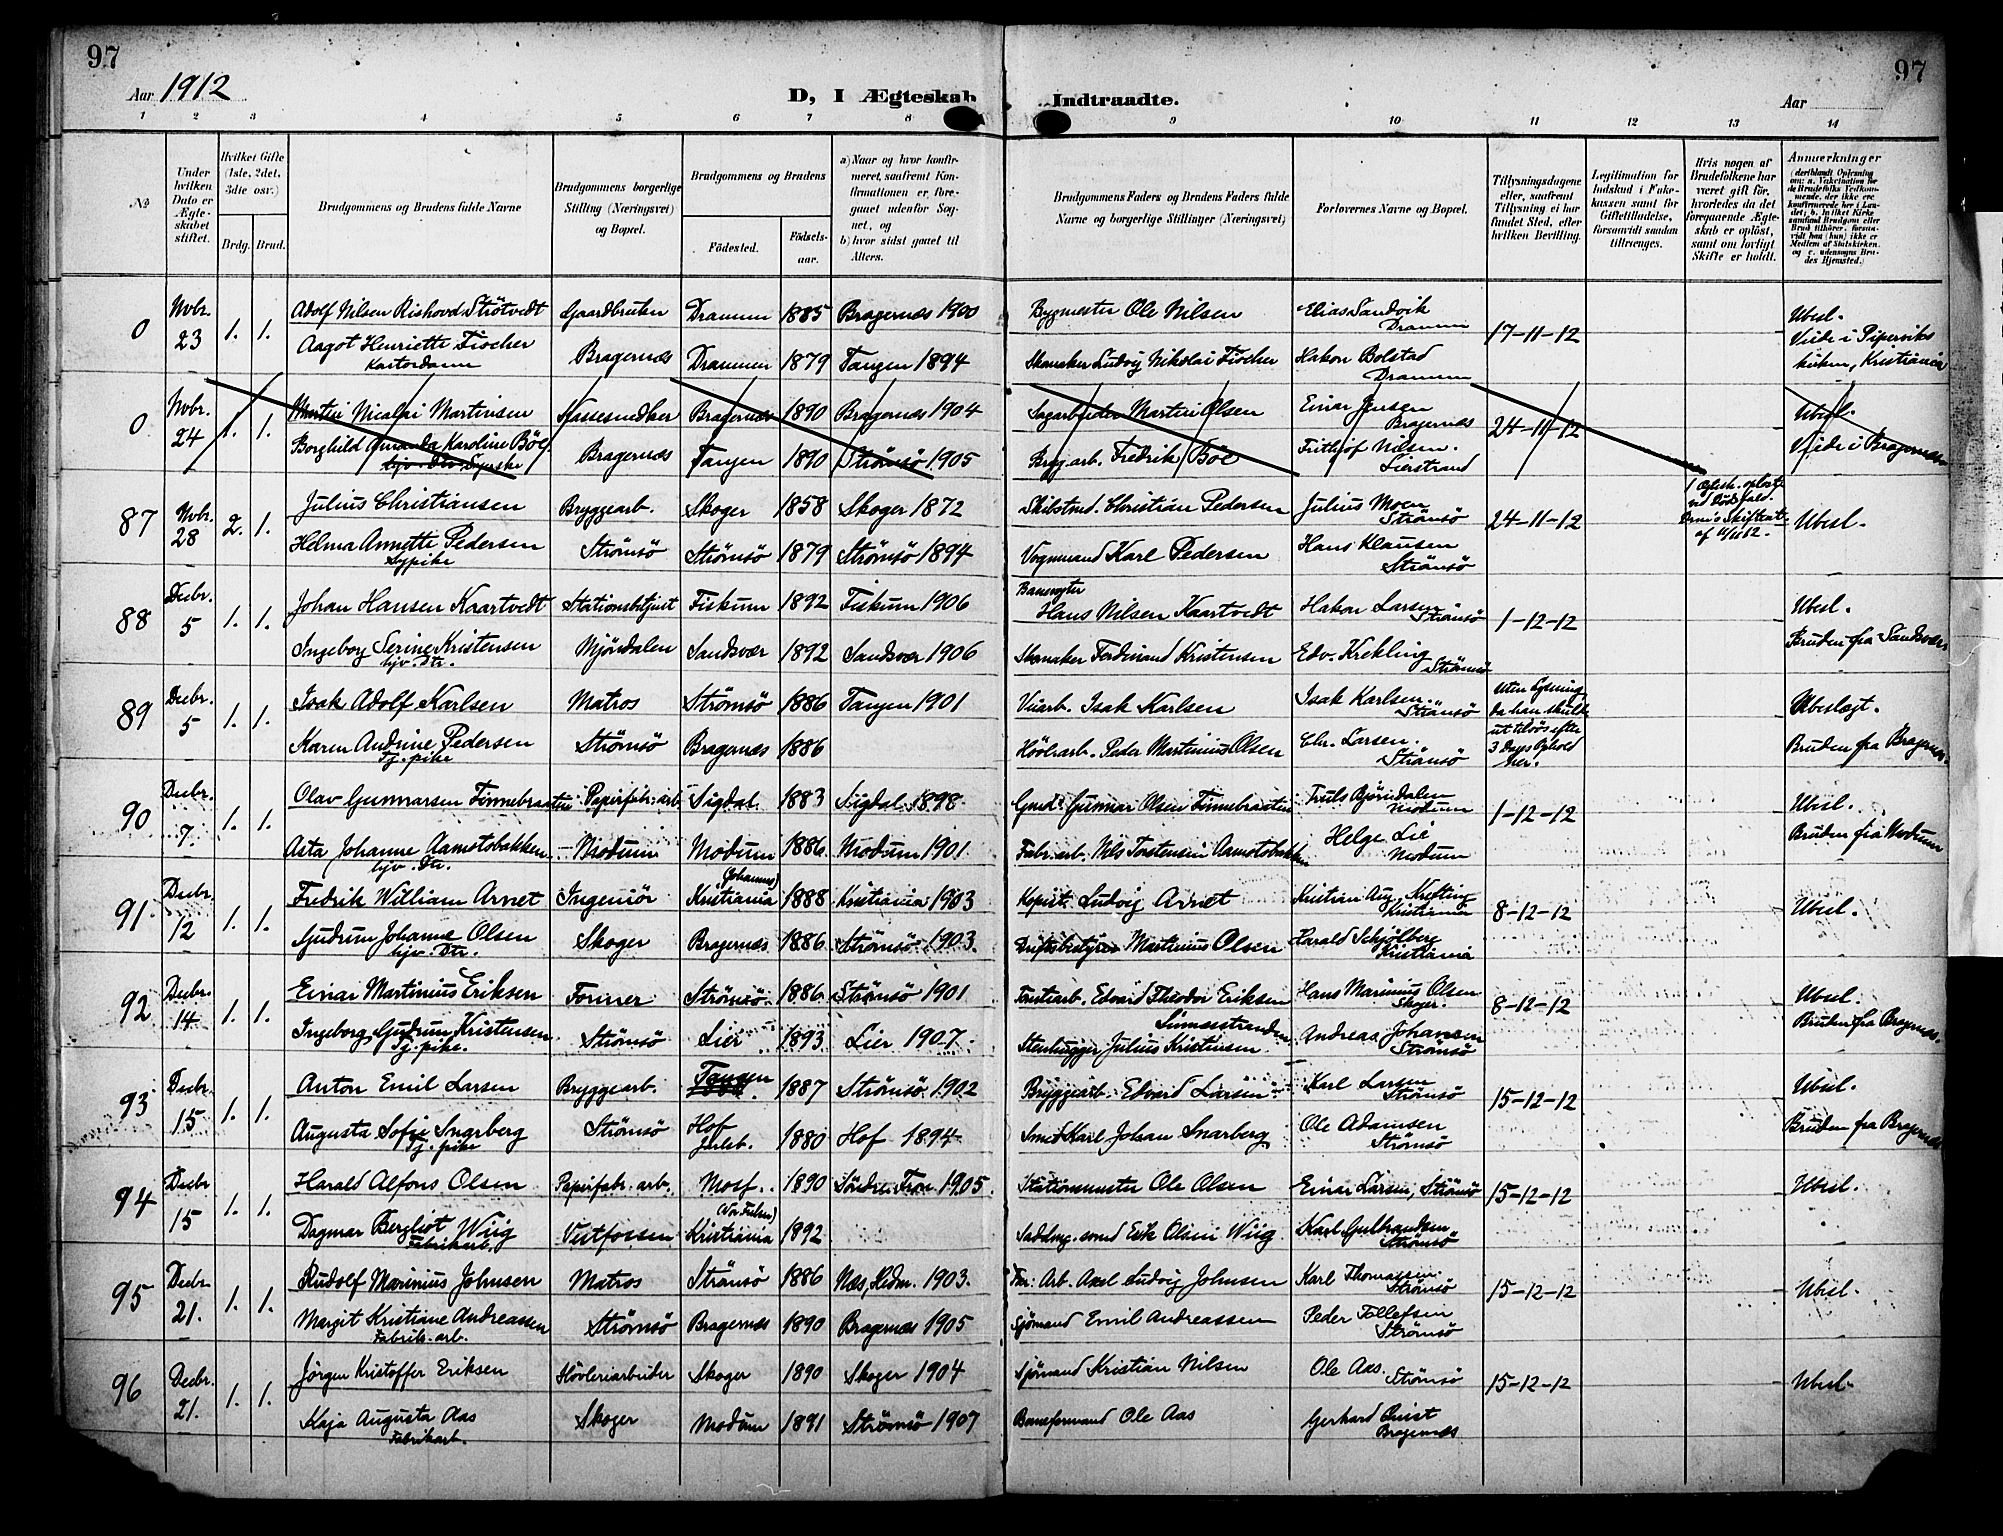 97
97
Aar 1912
D, I Ægteskab Indtraadte.
Aar
1 2 3 4 5 6 7 8 9 10 11 12 13 14
№
Under hvilken Dato er Ægteskabet stiftet.
Hvilket Gifte (1ste, 2det, 3die osv.)
Brdg. Brud.
Brudgommens og Brudens fulde Navne
Brudgommens borgerlige Stilling (Næringsvei) og Bopæl.
Brudgommens og Brudens
Fødested. Fødselsaar.
a) Naar og hvor konfirmeret, saafremt Konfirmationen er foregaaet udenfor Sognet, og
b) hvor sidst gaaet til Alters.
Brudgommens Faders og Brudens Faders fulde Navne og borgerlige Stillinger (Næringsvei)
Forlovernes Navne og Bopæl.
Tillysningsdagene eller, saafremt Tillysning ei har fundet Sted, efter hvilken Bevilling.
Legitimation for Indskud i Enkekassen samt for Giftetilladelse, forsaavidt saadan tiltrænges.
Hvis nogen af Brudefolkene har været gift før, hvorledes da det foregaaende Ægteskab er opløst, samt om lovligt Skifte er holdt.
Anmærkninger
0 Novbr. 23 1. 1. Adolf Nilsen Rishovd Strötvedt Gaardbruker Drammen 1885 Bragernæs 1900 Bygmester Ole Nilsen Elias Sandvik Drammen 17-11-12 Ubesl.
Aagot Henriette Fischer Bragernæs Drammen 1879 Tangen 1894 Skomaker Ludvig Nikolai Fischer Hakon Bolstad Drammen Viede i Piperviks kirken, Kristiania
0 Novbr. 24 1. 1. Martin Nicolai Martinsen Kassesnedker Bragernæs 1890 Bragernæs 1904 Sagarbeider Martin Olsen Einar Jensen Bragernæs 24-11-12 Ubesl.
Borghild Amanda Karoline Böe Bragernæs Tangen 1890 Strømsö 1905 Brygarb. Fredrik Böe Frithjof Nilsen Lierstrand Viede i Bragernæs
87 Novbr. 28 2. 1. Julius Christiansen Bryggearb. Skoger 1858 Skoger 1872 Christian Pedersen Julius Moen Strømsö 24-11-12 Ubesl.
Helma Annette Pedersen Sypike Strømsö Strømsö 1879 Strømsö 1894 Vognmand Karl Pedersen Hans Klausen Strømsö
88 Decbr. 5 1. 1. Johan Hansen Kaartvedt Stationsbetjent Fiskum 1892 Fiskum 1906 Banevogter Hans Nilsen Kaartvedt Hakon Larsen Strømsö 1-12-12 Ubesl.
Ingeborg Serine Kristensen hjv. Dtr. Mjøndalen Sandsvær 1892 Sandsvær 1906 Skomaker Ferdinand Kristensen Edv. Krekling Strømsö Bruden fra Sandsvær
89 Decbr. 5 1. 1. Isak Adolf Karlsen Matros Strømsö 1886 Tangen 1901 Isak Karlsen Isak Karlsen. Strømsö Uten Lysning da han skulde ut tilsös efter 3 Dages Ophold her. Ubeslagt.
Karen Andrine Pedersen Tj. pike Strømsö Bragernæs 1886 Hövlarb. Peder Martinius Olsen Chr. Larsen. Strømsö Bruden fra Bragernæs
90 Decbr. 7. 1. 1. Olav Gunnarsen Finnebraaten Papirfabr. arb. Sigdal 1883 Sigdal 1898 Gmd. Gunnar Olsen Finnebraaten Truls Bjöndalen Modum 1-12-12 Ubesl.
Asta Johanne Aamotsbakken hjv. Dtr. Modum Modum 1886 Modum 1901 Fabr. arb. Nils Torstensen Aamotsbakken Helge Lie Modum Bruden fra Modum
91 Decbr. 12 1. 1. Fredrik William Arnet Ingeniör (Johannes) Kristiania 1888 Kristiania 1903 Kopist Ludvig Arnet Kristian Aug. Krefting Kristiania 8-12-12 Ubesl.
Gudrun Johanne Olsen hjv. Dtr. Skoger Bragernæs 1886 Strømsö 1903. Driftsbestyrer Martinius Olsen Harald Schjölberg Kristiania
92 Decbr. 14 1. 1. Einar Martinius Eriksen Former Strømsö 1886 Strømsö 1901 Edvard Theodor Eriksen Hans Marinius Olsen Skoger. 8-12-12 Ubesl.
Ingeborg Gudrun Kristensen Tj. pike. Strømsö Lier 1893 Lier 1907 Stenhugger Julius Kristensen Andreas Johansen Strømsö Bruden fra Bragernæs.
93 Decbr. 15 1. 1. Anton Emil Larsen Bryggearb. Tangen 1887 Strømsö 1902 Bryggearb. Edvard Larsen Karl Larsen Strømsö 15-12-12 Ubesl.
Augusta Sofie Snarberg Tj. pike Strømsö Hof Jarlsb. 1880 Hof 1894 Smed Karl Johan Snarberg Ole Adamsen Strømsö Bruden fra Bragernæs
94 Decbr. 15 1. 1. Harald Alfons Olsen Papirfabr. arb. Moss. 1890 Söndre Fron 1905. Stationsmester Ole Olsen Einar Larsen, Strømsö 15-12-12 Ubesl.
Dagmar Bergliot Wiig Fabrikarb. Vestfossen Kristiania 1892 Erik Olsen Wiig Karl Gulbrandsen Strømsö
95 Decbr. 21. 1. 1. Rudolf Marinius Johnsen Matros Strømsö 1886 Næs, Hedm. 1903. Arb. Axel Ludvig Johnsen Karl Thomassen Strømsö 15-12-12 Ubesl.
Margit Kristiane Andreassen Fabrik. arb. Strømsö Bragernæs 1890 Bragernæs 1905 Sjömand Emil Andreassen Peder Tollefsen Strømsö
96 Decbr. 21. 1. 1. Jörgen Kristoffer Eriksen Hövleriarbeider Skoger 1890 Skoger 1904 Sjömand Kristian Nilsen Ole Aas. Strømsö 15-12-12 Ubesl.
Kaja Augusta Aas Fabrikarb. Skoger Modum 1891 Strømsö 1907 Baneformand Ole Aas Gerhard Quist Bragernæs